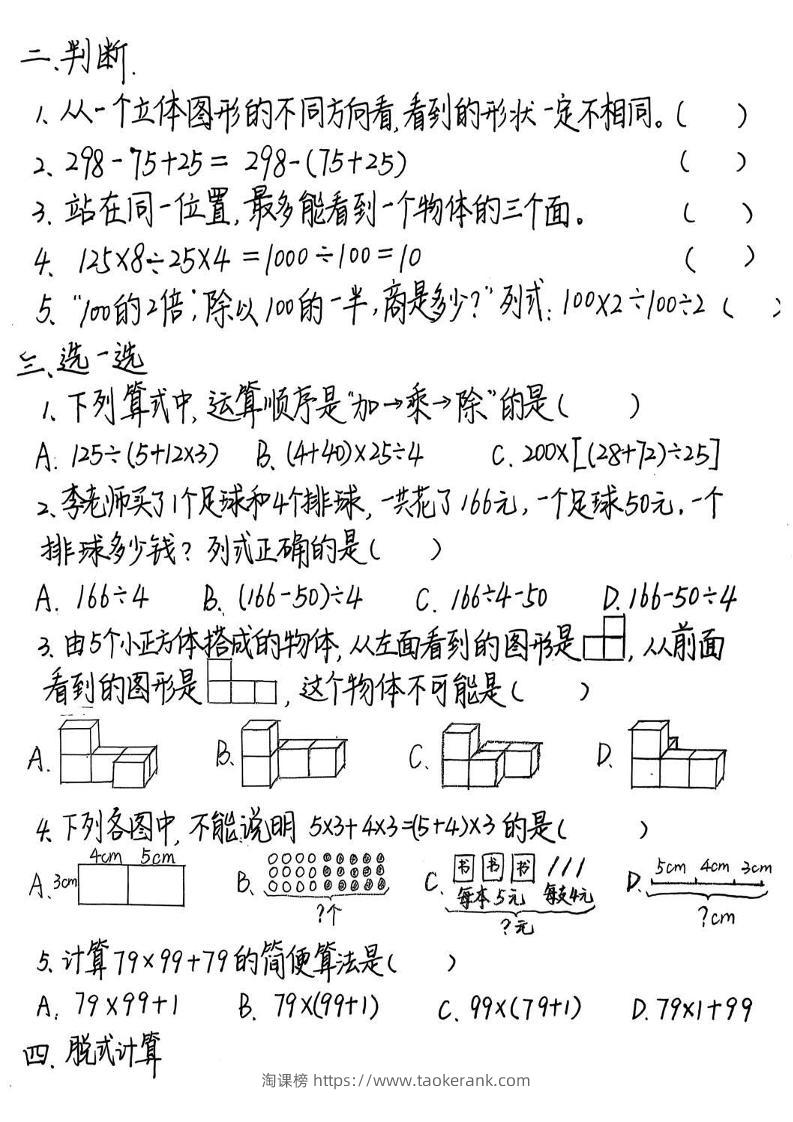 二、判断.
1、从一个立体图形的不同方向看,看到的形状一定不相同。(  )
2、298-75+25= 298-(75+25) (  )
3、站在同一位置,最多能看到一个物体的三个面。 (  )
4、125×8÷25×4 =1000÷100=10 (  )
5、"100的2倍,除以100的一半,商是多少?"列式:100×2÷100÷2 (  )
三、选一选
1、下列算式中,运算顺序是"加→乘→除"的是(  )
A. 125÷(5+12×3) B. (4+40)×25÷4 C. 200×[(28+72)÷25]
2、李老师买了1个足球和4个排球,一共花了166元,一个足球50元,一个
排球多少钱?列式正确的是(  )
A. 166÷4 B. (166-50)÷4 C. 166÷4-50 D. 166-50÷4
3、由5个小正方体搭成的物体,从左面看到的图形是 ,从前面
看到的图形是 ,这个物体不可能是(  )
A. B. C. D.
4、下列各图中,不能说明 5×3+4×3=(5+4)×3 的是(  )
A. 3cm 4cm 5cm B. ?个 C. 书 书 书 每本5元 每支4元 ?元 D. 5cm 4cm 3cm ?cm
5、计算79×99+79的简便算法是(  )
A. 79×99+1 B. 79×(99+1) C. 99×(79+1) D. 79×1+99
四、脱式计算
淘课榜 https://www.taokerank.com